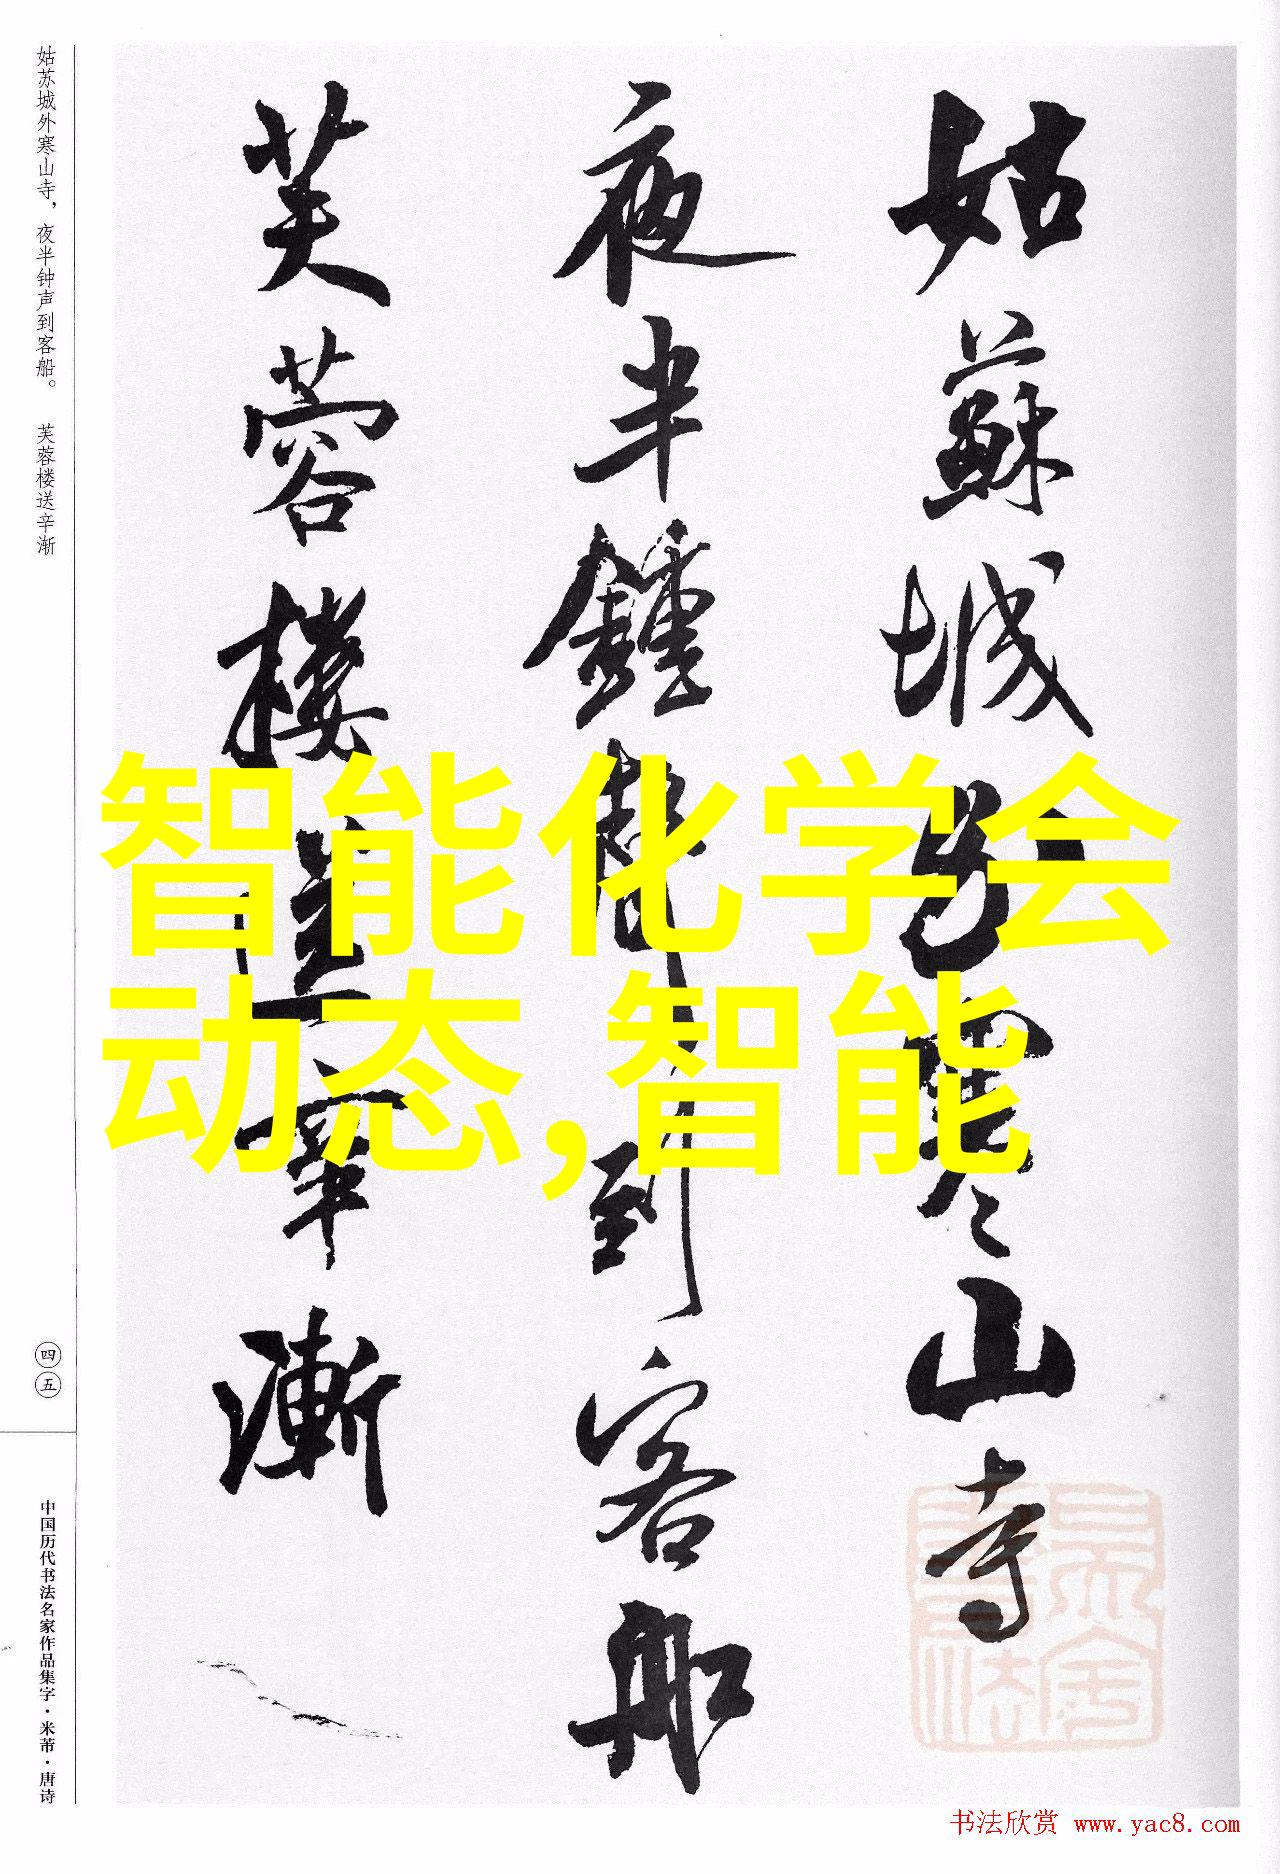 姑苏城外寒山寺，夜半钟声到客船。 芙蓉楼送辛渐
姑蘇城外寒山寺
夜半鍾聲到客船
芙蓉樓送辛漸
智能化学会
动态,智能
四五
中国历代书法名家作品集字·米芾·唐诗
书法欣赏 www.yac8.com